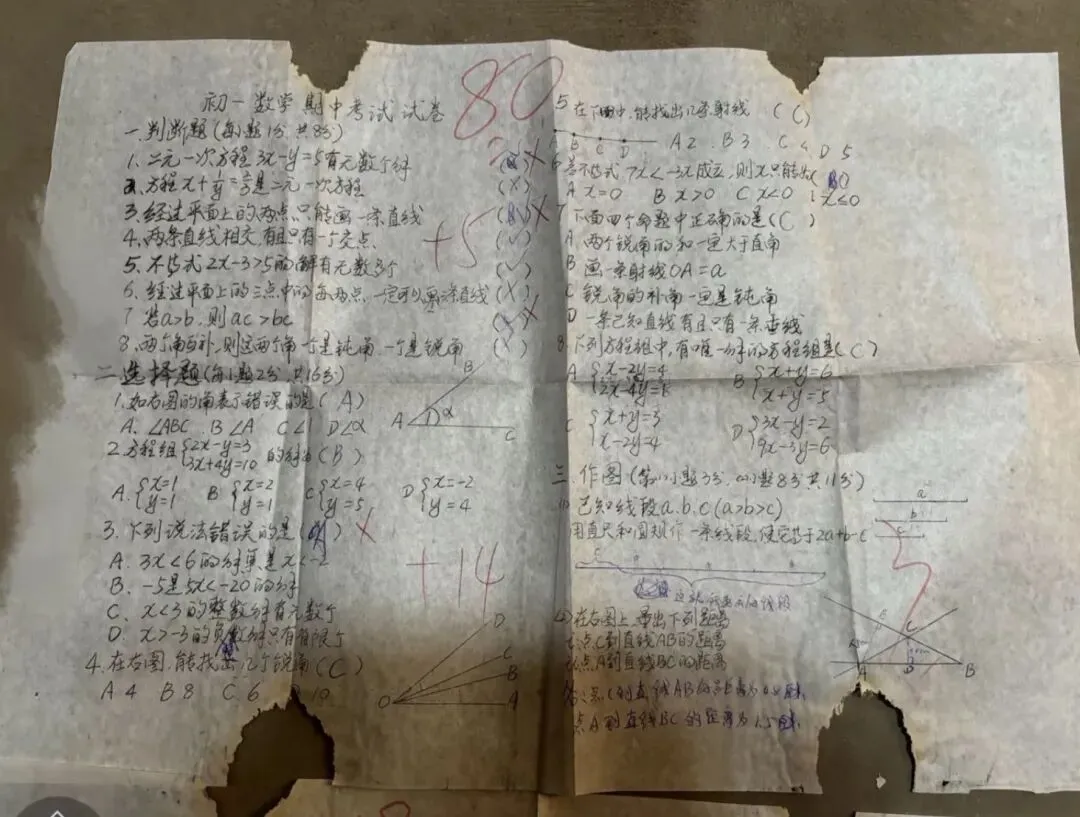 初一数学期中考试试卷
80
一.判断题(每小题1分,共8分)
1、二元一次方程3x-y=5有无数个解 ( )
2、方程x+1/y=2/3是二元一次方程 (X)
3、经过平面上的两点只能画一条直线 ( )
4、两条直线相交,有且只有一个交点、 (√)
+5
5、不等式2x-3>5的解有无数多个 (√)
6、经过平面上的三点中的每两点,一定可以画三条直线 (X)
7 若a>b,则ac>bc ( )
8、两个角互补,则这两个角一个是钝角,一个是锐角 (X)
二.选择题(每小题2分,共16分)
1、如右图的角表示错误的是(A)
A. ∠ABC . B ∠A C ∠1 D ∠α
B
A 1 α C
2.方程组{2x-y=3 3x+4y=10 的解为(B)
A.{x=1 y=1 B{x=2 y=1 C{x=4 y=5 D{x=-2 y=4
3、下列说法错误的是( )
A. 3x<6的解集是x<-2
B. -5是5x<-20的解
C. x<3的整数解有无数个
D. x>-3的负数解只有有限个
+14
4.在右图,能找出几个锐角(C)
A 4 B 8 C 6 D 10
D
C
B
O A
5 在下图中,能找出几条射线 (C)
A B C D A 2 . B 3 . C 4 D 5
6.若不等式7x<-3x成立,则x只能为( )
A x=0 B x>0 C x<0 D x≤0
7 下面四个命题中正确的是(C)
A 两个锐角的和一定大于直角
B 画一条射线OA=a
C 锐角的补角一定是钝角
D 一条已知直线有且只有一条垂线
8、下列方程组中,有唯一解的方程组是(C)
A {x-2y=4 B {x+y=6 x+y=5
C {x+y=3 x-2y=4 D {3x-y=2 9x-3y=6
三.作图(第(1)小题3分,(2)小题8分,共11分)
(1)已知线段a.b.c(a>b>c)
用直尺和圆规作一条线段,使它等于2a+b-c
a
b
c
(2)在右图上,量出下列距离
点C到直线AB的距离
点A到直线BC的距离
点C到直线AB的距离为
点A到直线BC的距离为1.5
E
C
A D B